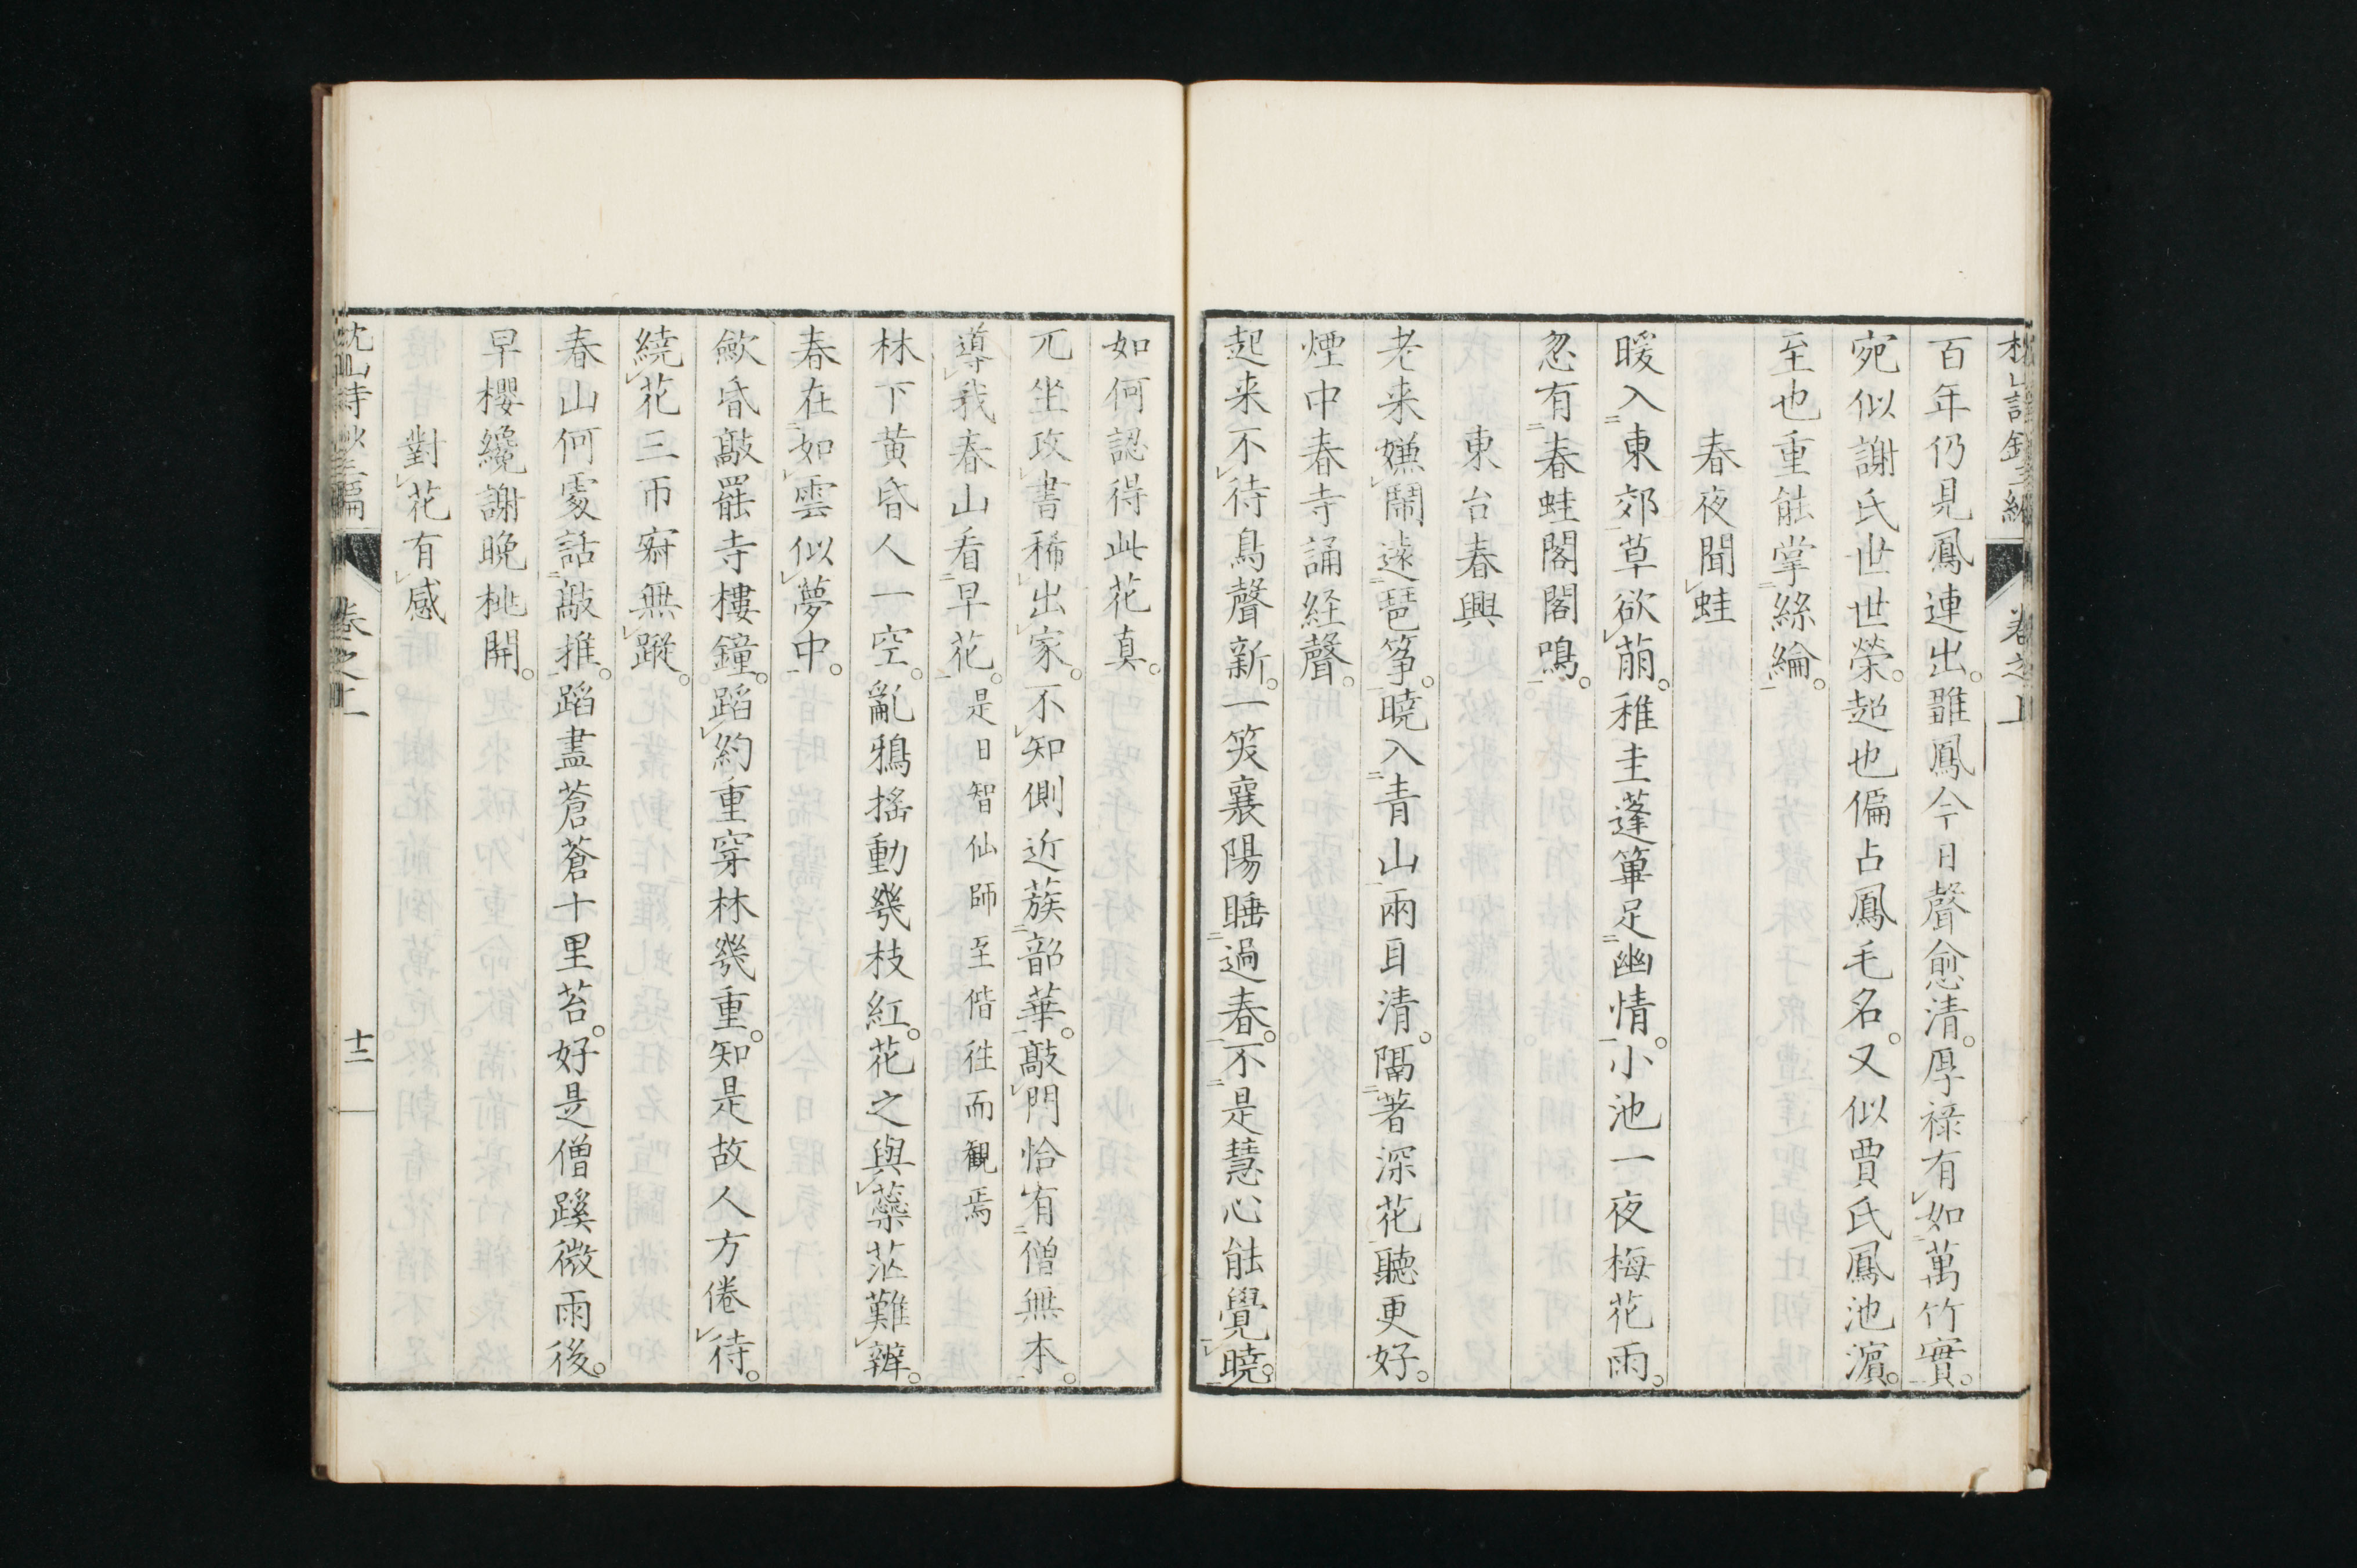 百年仍見鳳連出。雛鳳今日聲愈清。厚祿有如萬竹實。
宛似謝氏世世榮。超也偏占鳳毛名。又似賈氏鳳池濵。
至也重能掌絲綸。
春夜聞蛙
暖入東郊草欲萠。稚圭蓬篳足幽情。小池一夜梅花雨。
忽有春蛙閣閣鳴。
東台春興
老来嫌鬧遠琶筝。曉入青山兩耳清。隔著深花聽更好。
煙中春寺誦経聲。
起来不待鳥聲新。一笑襄陽睡過春。不是慧心能覺曉。
如何認得此花真。
兀坐攻書稀出家。不知側近蔟韶華。敲門恰有僧無本。
導我春山看早花。是日智仙師至偕徃而観焉
林下黄昏人一空。亂鴉搖動幾枝紅。花之與蘂茫難辨。
春在如雲似夢中。
歛昏敲罷寺樓鐘。蹈約重穿林幾重。知是故人方倦待。
繞花三帀寂無蹤。
春山何處話敲推。蹈盡蒼蒼十里苔。好是僧蹊微雨後。
早櫻纔謝晩桃開。
對花有感
枕山詩鈔三編 卷之上 十二